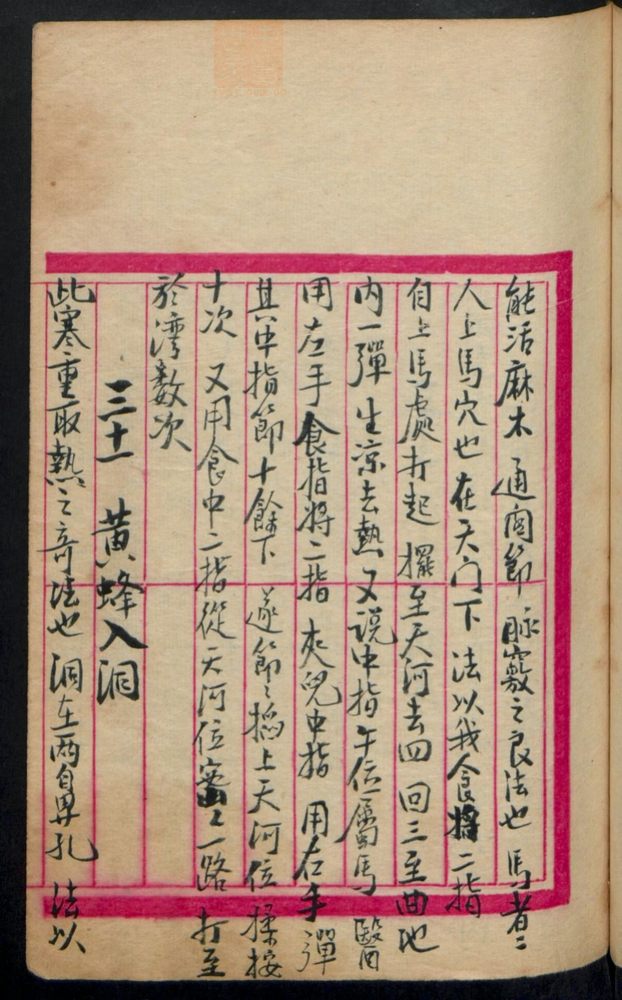 能活麻木 通閉節脉竅之良法也 馬者二
人上馬穴也 在天门下 法以我食將二指
自上馬處打起 擺至天河 去四回三至曲池
内一彈 生凉去熱 又説中指午位屬馬 醫
用左手食指將二指夾兒中指 用右手彈
其中指節十餘下 遂節〻搊上天河位 揉按
十次 又用食中二指從天河位密〻一路打至
於灣數次
三十一 黄蜂入洞
此寒重取熱之奇法也 洞在兩鼻孔 法以